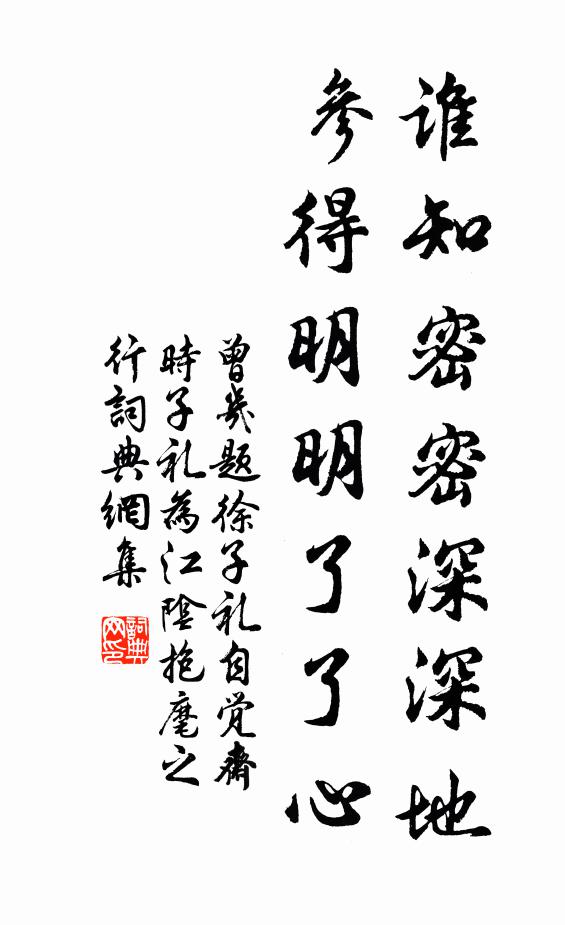 誰知密密深深地
參得明明了了心
曾幾題徐子礼自覺齋
時子礼為江陰抱麾之
行詞典網集
詞典网印